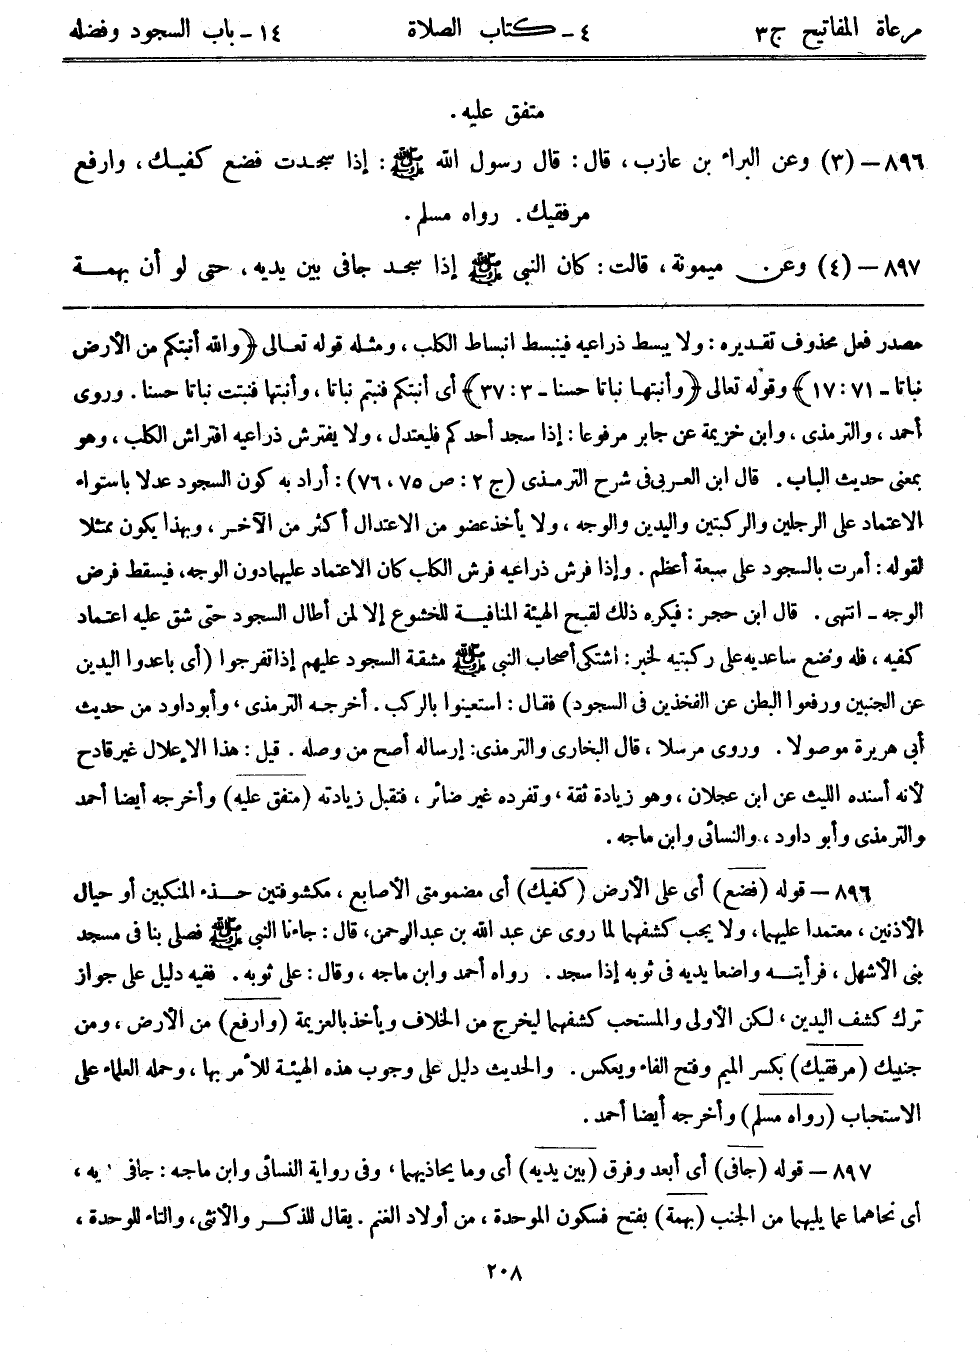 مرعاة المفاتيح ج٣ ٤ ـ كتاب الصلاة ١٤ ـ باب السجود وفضله
متفق عليه .
٨٩٦ – (٣) وعن البراء بن عازب ، قال : قال رسول الله ﷺ : إذا سجدت فضع كفيك ، وارفع
مرفقيك . رواه مسلم .
٨٩٧ – (٤) وعن ميمونة ، قالت : كان النبي ﷺ إذا سجد جافى بين يديه ، حتى لو أن بهمة
مصدر فعل محذوف تقديره : ولا يبسط ذراعيه فينبسط انبساط الكلب ، ومثله قوله تعالى ﴿والله أنبتكم من الأرض
نباتا ـ ٧١ : ١٧﴾ وقوله تعالى ﴿وأنبتها نباتا حسنا ـ ٣ : ٣٧﴾ أى أنبتكم فنبتم نباتا ، وأنبتها فنبتت نباتا حسنا . وروى
أحمد ، والترمذى ، وابن خزيمة عن جابر مرفوعا : إذا سجد أحدكم فليعتدل ، ولا يفترش ذراعيه افتراش الكلب ، وهو
بمعنى حديث الباب . قال ابن العربى فى شرح الترمذى (ج ٢ : ص ٧٥ ، ٧٦) : أراد به كون السجود عدلا باستواء
الاعتماد على الرجلين والركبتين واليدين والوجه ، ولا يأخذ عضو من الاعتدال أكثر من الآخر ، وبهذا يكون ممثلا
لقوله : أمرت بالسجود على سبعة أعظم . وإذا فرش ذراعيه فرش الكلب كان الاعتماد عليهما دون الوجه ، فيسقط فرض
الوجه ـ انتهى . قال ابن حجر : فيكره ذلك لقبح الهيئة المنافية للخشوع إلا لمن أطال السجود حتى شق عليه اعتماد
كفيه ، فله وضع ساعديه على ركبتيه لخبر : اشتكى أصحاب النبي ﷺ مشقة السجود عليهم إذا تفرجوا (أى باعدوا اليدين
عن الجنبين ورفعوا البطن عن الفخذين فى السجود) فقال : استعينوا بالركب . أخرجه الترمذى ، وأبو داود من حديث
أبى هريرة موصولا . وروى مرسلا ، قال البخارى والترمذى : إرساله أصح من وصله . قيل : هذا الإعلال غير قادح
لأنه أسنده الليث عن ابن عجلان ، وهو زيادة ثقة ، وتفرده غير ضائر ، فتقبل زيادته (متفق عليه) وأخرجه أيضا أحمد
والترمذى وأبو داود ، والنسائى وابن ماجه .
٨٩٦ – قوله (فضع) أى على الأرض (كفيك) أى مضمومتى الأصابع ، مكشوفتين حذاء المنكبين أو حيال
الأذنين ، معتمدا عليهما ، ولا يجب كشفهما لما روى عن عبد الله بن عبد الرحمن ، قال : جاءنا النبي ﷺ فصلى بنا فى مسجد
بنى الأشهل ، فرأيته واضعا يديه فى ثوبه إذا سجد . رواه أحمد وابن ماجه ، وقال : على ثوبه . ففيه دليل على جواز
ترك كشف اليدين ، لكن الأولى والمستحب كشفهما ليخرج من الخلاف ويأخذ بالعزيمة (وارفع) من الأرض ، ومن
جنبيك (مرفقيك) بكسر الميم وفتح الفاء ويعكس . والحديث دليل على وجوب هذه الهيئة للأمر بها ، وحمله العلماء على
الاستحباب (رواه مسلم) وأخرجه أيضا أحمد .
٨٩٧ – قوله (جافى) أى أبعد وفرق (بين يديه) أى وما يحاذيهما ، وفى رواية النسائى وابن ماجه : جافى يه ،
أى نحاهما عما يليهما من الجنب (بهمة) بفتح فسكون الموحدة ، من أولاد الغنم . يقال للذكر والأنثى ، والتاء للوحدة ،
٢٠٨